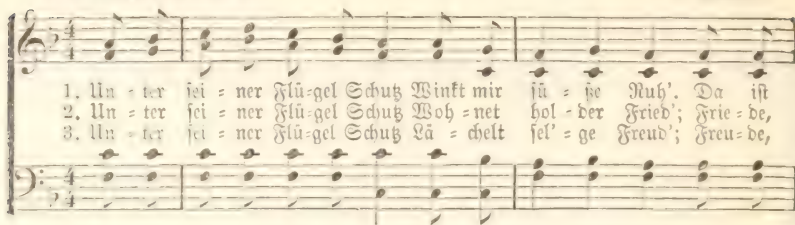 1. Un = ter sei = ner Flü=gel Schutz Winkt mir sü = ße Ruh'. Da ist
2. Un = ter sei = ner Flü=gel Schutz Woh = net hol = der Fried'; Frie = de,
3. Un = ter sei = ner Flü=gel Schutz Lä = chelt sel' = ge Freud'; Freu = de,